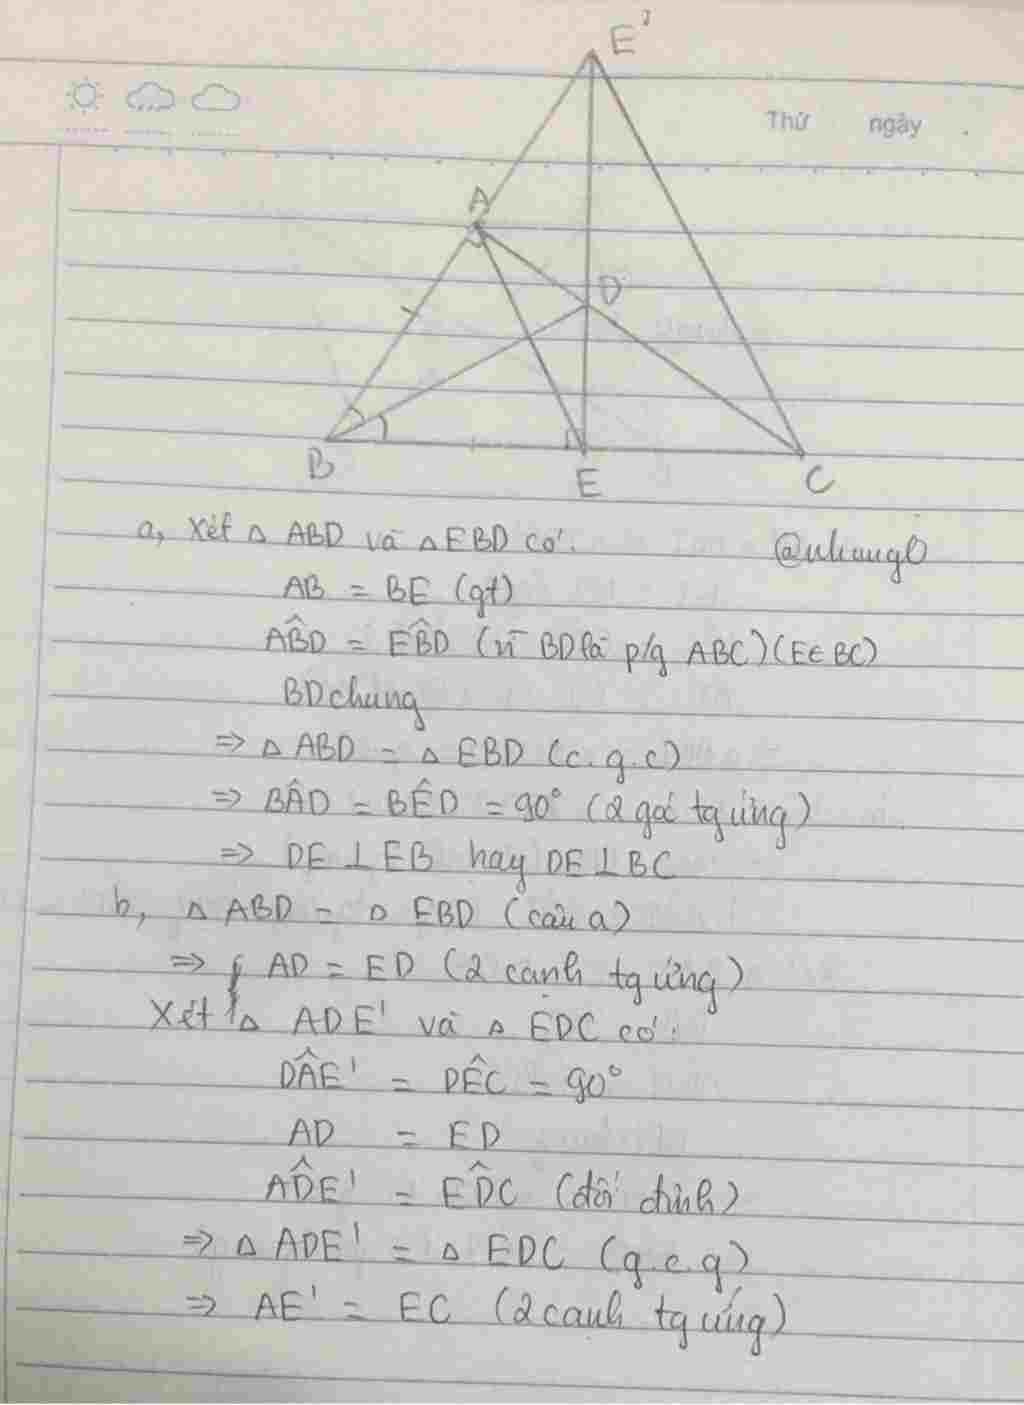 E'
Thứ ngày
A
D
B
E
C
a, Xét △ ABD và △EBD có:
@nhung0
AB = BE (gt)
AB̂D = EB̂D (vì BD là p/g ABC)(E∈BC)
BD chung
⇒ △ ABD = △ EBD (c.g.c)
⇒ BÂD = BÊD = 90° (2 góc tg ứng)
⇒ DE ⊥ EB hay DE ⊥ BC
b, △ ABD = △ EBD (câu a)
⇒ AD = ED (2 cạnh tg ứng)
Xét △ ADE' và △ EDC có:
DÂE' = DÊC = 90°
AD = ED
AD̂E' = ED̂C (đối đỉnh)
⇒ △ ADE' = △ EDC (g.c.g)
⇒ AE' = EC (2 cạnh tg ứng)